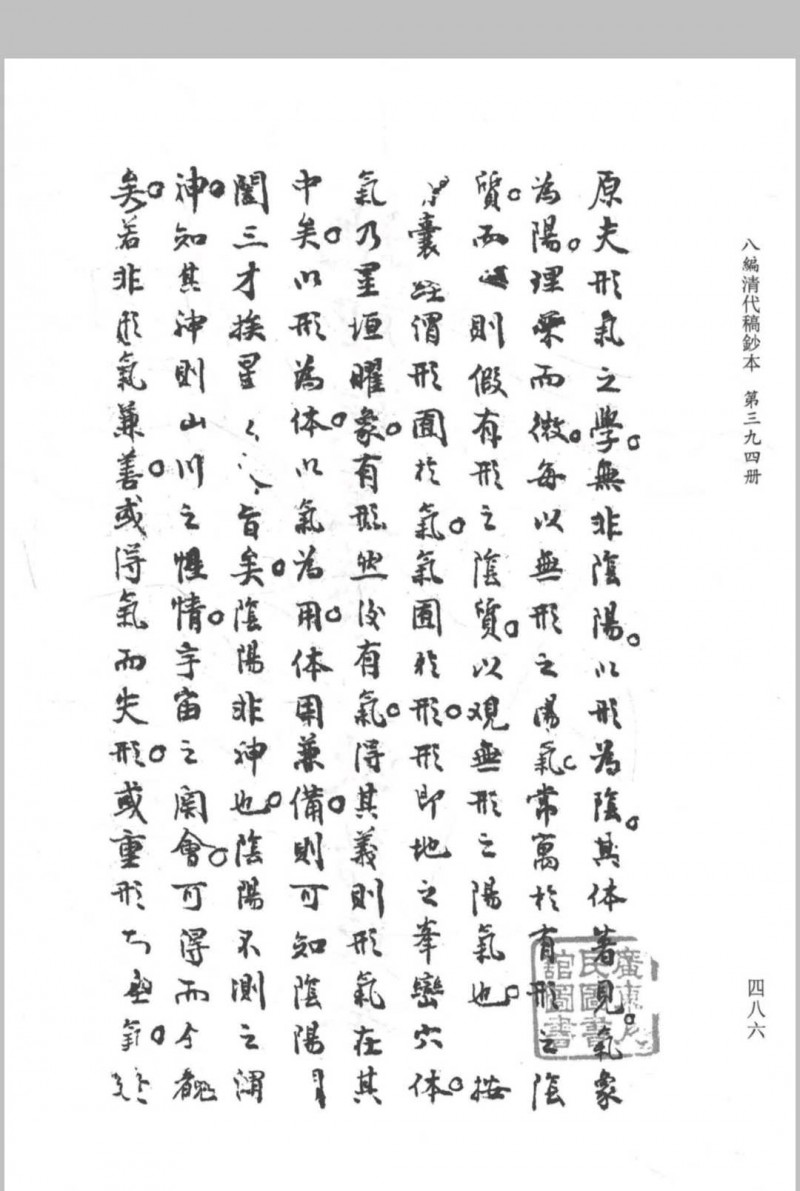 八編清代稿鈔本 第三九四册
原夫形氣之學。無非陰陽。以形為陰。其体著見。氣象
為陽。理奧而微。每以無形之陽氣。常寓於有形之陰
質。而 則假有形之陰質。以观無形之陽氣也。按
囊經謂形囿於氣。氣囿於形。形即地之峯巒穴体。
氣乃星垣曜象。有形然后有氣。得其義則形氣在其
中矣。以形為体。以氣為用。体用兼備。則可知陰陽
闔三才挨星 旨矣。陰陽非神也。陰陽不測之謂
神。知其神則山川之性情。宇宙之関會。可得而今
矣。若非形氣兼善。或得氣而失形。或重形 氣。
四八六
廣東人民圖書館圖書